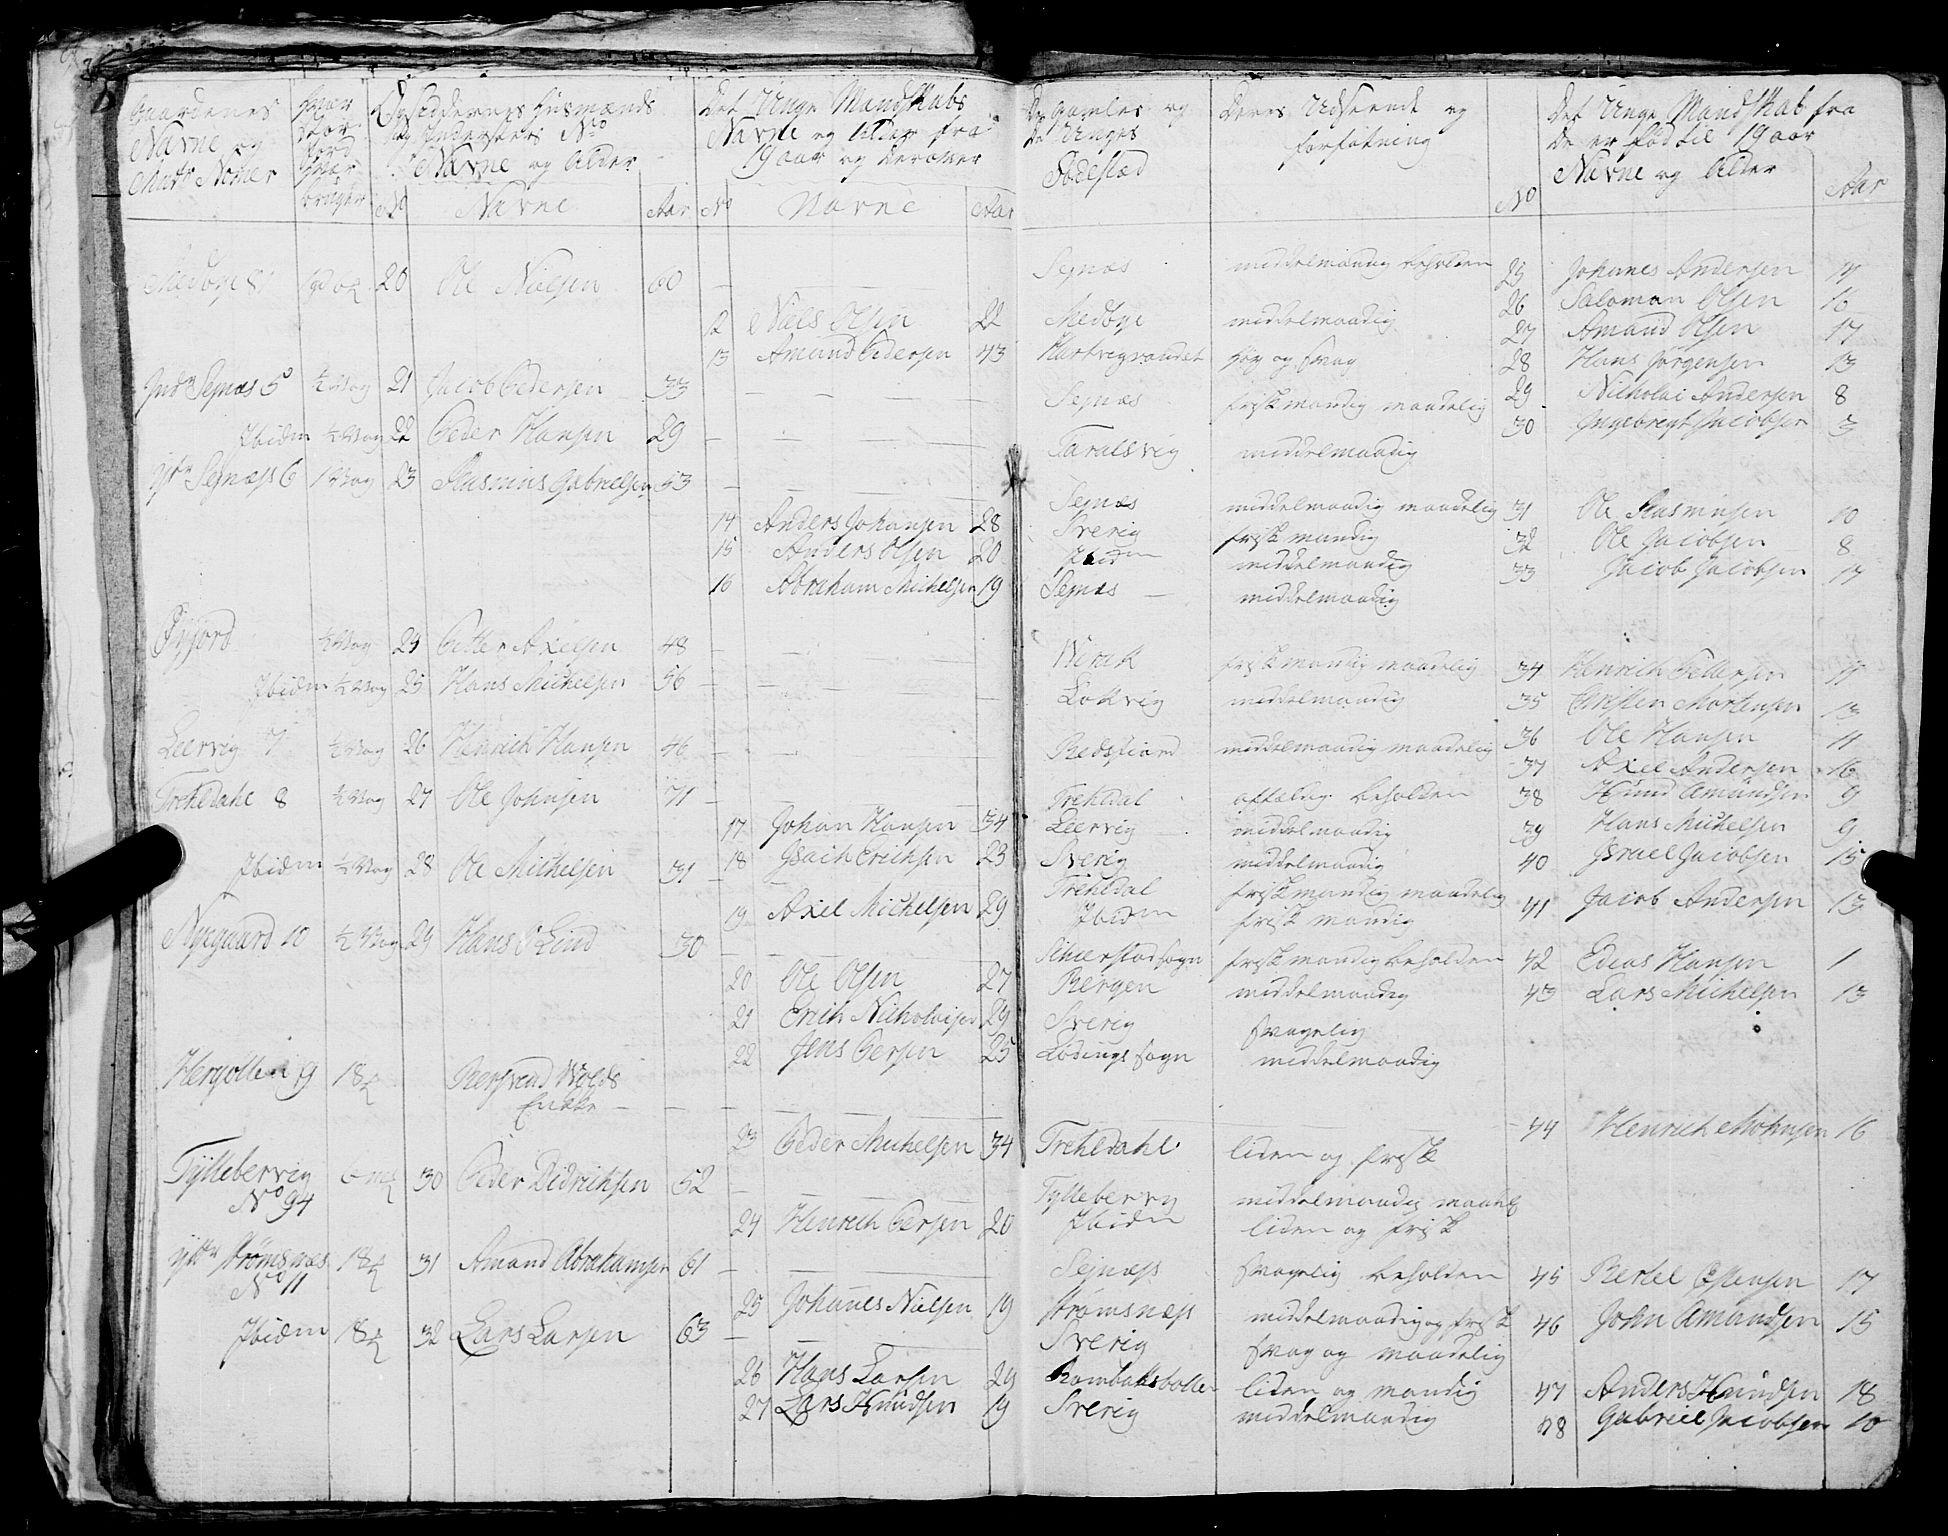 Gaardenes
Navne og
Matr Nomer
Hvor
bruger
Opsiddernes Husmænds
og Inderster No
Navne og Alder
No Navne Aar
Det Unge Mandskabs
Navne og Alder fra
19 aar og derover
No Navne Aar
De gamles og
De Unges
Fødested
Deres Udseende og
forfatning
Det Unge Mandskab fra
De er fød til 19 aar
Navne og Alder
No Aar
Medbye 8 20 Ole Nielsen 60 — Sejnæs middelmaadig beholden 25 Johanes Andersen 17
26 Salomon Olsen 16
12 Niels Olsen 22 Medbye middelmaadig 27 Amund Olsen 17
13 Amund Pedersen 43 Hartvigvandet høy og svag 28 Hans Jørgensen 13
Indr Sejnæs 5 ½ Vog 21 Jacob Pedersen 33 — Sejnæs frisk mandig maadelig 29 Nicholai Andersen 8
Ibidm ½ Vog 22 Peder Hansen 29 — Taralsvig middelmaadig 30 Ingebregt Jacobsen 3
Ytr Sejnæs 6 1 Vog 23 Rasmus Gabrielsen 53 — Sejnæs middelmaadig maadelig 31 Ole Rasmusen 10
14 Anders Johansen 28 Sverig frisk mandig 32 Ole Jacobsen 8
15 Anders Olsen 20 Ibidm middelmaadig 33 Jacob Jacobsen 17
16 Abraham Michelsen 19 Sejnæs — middelmaadig
Øyjord ½ Vog 24 Petter Axelsen 48 — frisk mandig maadelig 34 Henrich Pettersen 17
Ibidm ½ Vog 25 Hans Michelsen 56 — Lokvig middelmaadig 35 Christen Mortensen 13
Leervig 7 ½ Vog 26 Henrich Hansen 46 — Redsfiord middelmaadig maadelig 36 Ole Hansen 11
37 Axel Andersen 16
Trehldahl 8 ½ Vog 27 Ole Johnsen 71 — Trehldal affældig beholden 38 Knud Amundsen 9
17 Johan Hansen 34 Leervig — middelmaadig 39 Hans Michelsen 9
Ibidm ½ Vog 28 Ole Michelsen 31 — 18 Isach Erichsen 23 Sverig middelmaadig 40 Israel Jacobsen 15
Trehldal frisk mandig maadelig
19 Axel Michelsen 29 Ibidm frisk mandig 41 Jacob Andersen 13
Nyegaard 10 ½ Vog 29 Hans P Lind 30 — frisk mandig beholden 42 Edias Hansen 1
20 Ole Olsen 27 Bergen middelmaadig 43 Lars Michelsen 13
21 Erich Nicholaisen 29 Sverig svagelig
22 Jens Persen 25 Lødings sogn middelmaadig
Hergotten 9 18 Enke — — — 44 Henrich 16
23 Peder Michelsen 34 Trehldahl liden og frisk
Tyttebervig
No 94 30 Peder Didrichsen 52 — Tyttebervig middelmaadig maadel
24 Henrich Persen 20 Ibidm liden og frisk
Ytr Strømsnæs
No 11 18 31 Amund Abrahamsen 61 — Sejnæs svagelig beholden 45 Bertel Estensen 17
25 Johanes Nielsen 19 Strømsnæs middelmaadig og frisk 46 John Amundsen 15
Ibidm 18 32 Lars Larsen 63 — Sverig svag og maadelig
26 Hans Larsen 29 Rombaksbotten liden og mandig 47 Anders Knudsen 18
27 Lars Knudsen 19 Sverig middelmaadig 48 Gabriel Jacobsen 10